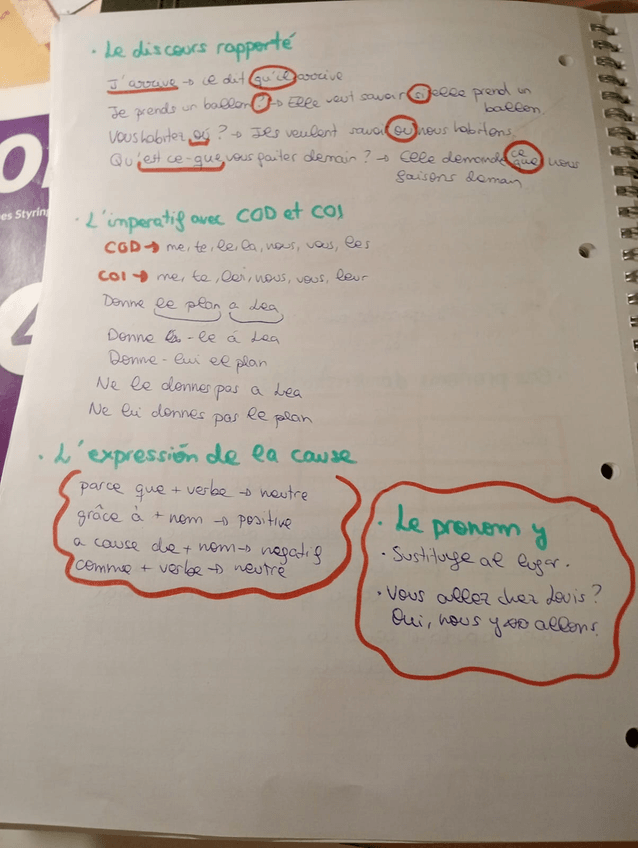 es Styring
· Le discours rapporté
J'arrive → il dit qu'il arrive
Je prends un ballon? → Elle veut savoir si elle prend un
ballon.
Vous habitez où? → Ils veulent savoir où nous habitons.
Qu'est ce-que vous faites demain? → Elle demande ce que nous
faisons deman
· L'imperatif avec COD et COI
COD → me, te, le, la, nous, vous, les
COI → me, te, lui, nous, vous, leur
Donne le plan a Lea
Donne -le á Lea
Donne-lui el plan
Ne le donnes pas a Lea
Ne lui donnes pas le plan
· L'expressión de la cause
parce que + verbe → neutre
grâce à + nom → positive
a cause de + nom → negatif
comme + verbe → neutre
· Le pronom y
· Sustituye al lugar.
· Vous allez chez Louis?
Oui, nous y allons.